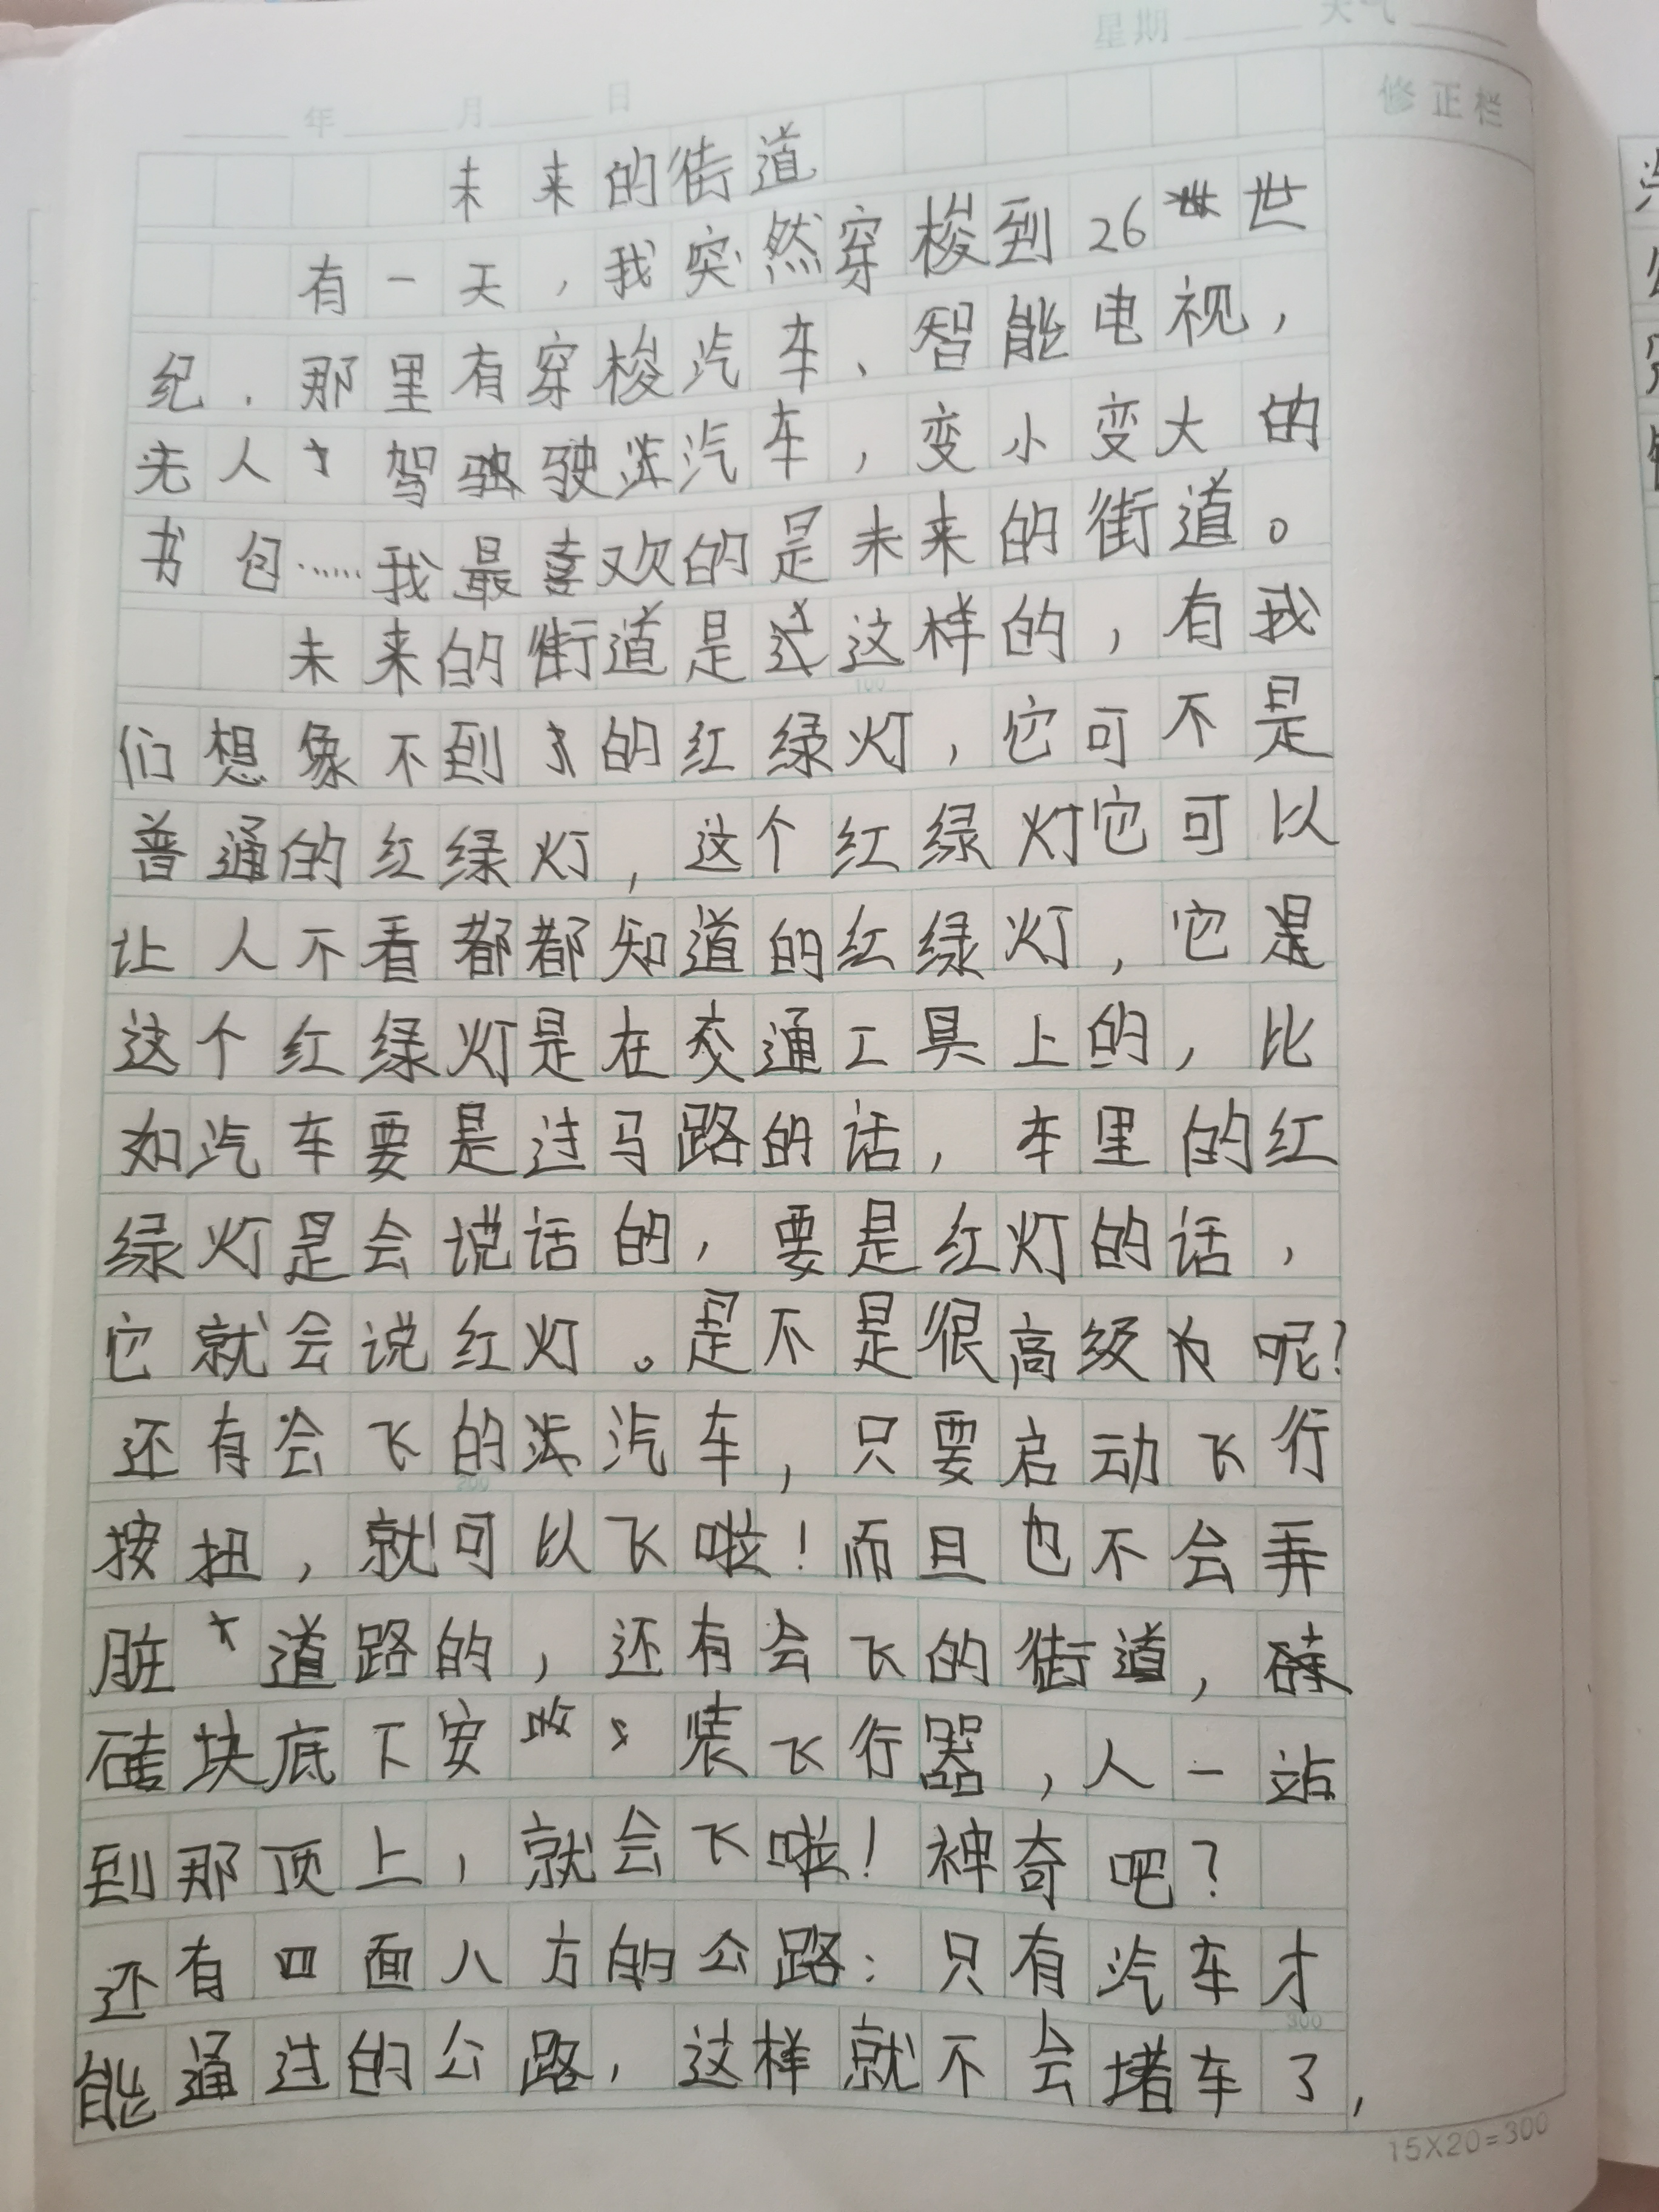 星期 天气
年 月 日
修正栏
未来的街道
有一天，我突然穿梭到26世
纪.那里有穿梭汽车、智能电视，
无人驾驶汽车，变小变大的
书包……我最喜欢的是未来的街道。
未来的街道是这样的，有我
们想象不到的红绿灯，它可不是
普通的红绿灯，这个红绿灯它可以
让人不看都都知道的红绿灯，它是
这个红绿灯是在交通工具上的，比
如汽车要是过马路的话，车里的红
绿灯是会说话的，要是红灯的话，
它就会说红灯。是不是很高级呢？
还有会飞的汽车，只要启动飞行
按扭，就可以飞啦！而且也不会弄
脏道路的，还有会飞的街道，
砖块底下安装飞行器，人一站
到那顶上，就会飞啦！神奇吧？
还有四面八方的公路：只有汽车才
能通过的公路，这样就不会堵车了，
100
200
300
15X20=300